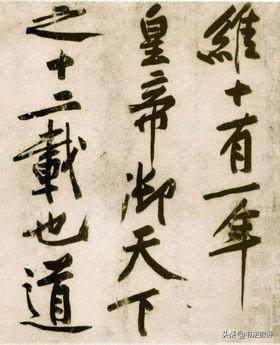 維十有一年
皇帝御天下
之十二載也道
头条@书法微博